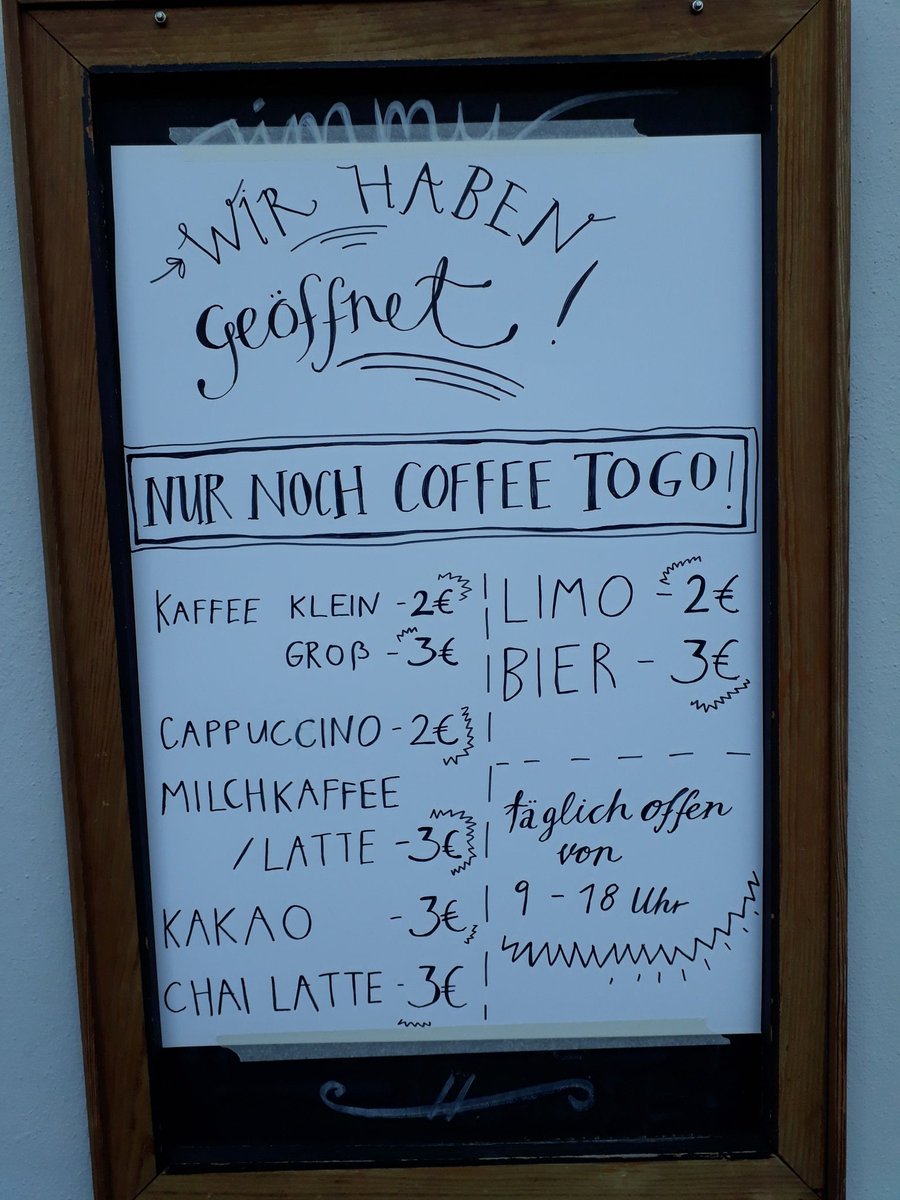 WIR HABEN
geöffnet!
NUR NOCH COFFEE TO GO!
KAFFEE KLEIN - 2€
GROß - 3€
CAPPUCCINO - 2€
MILCHKAFFEE
/LATTE - 3€
KAKAO - 3€
CHAI LATTE - 3€
LIMO - 2€
BIER - 3€
täglich offen
von
9 - 18 Uhr